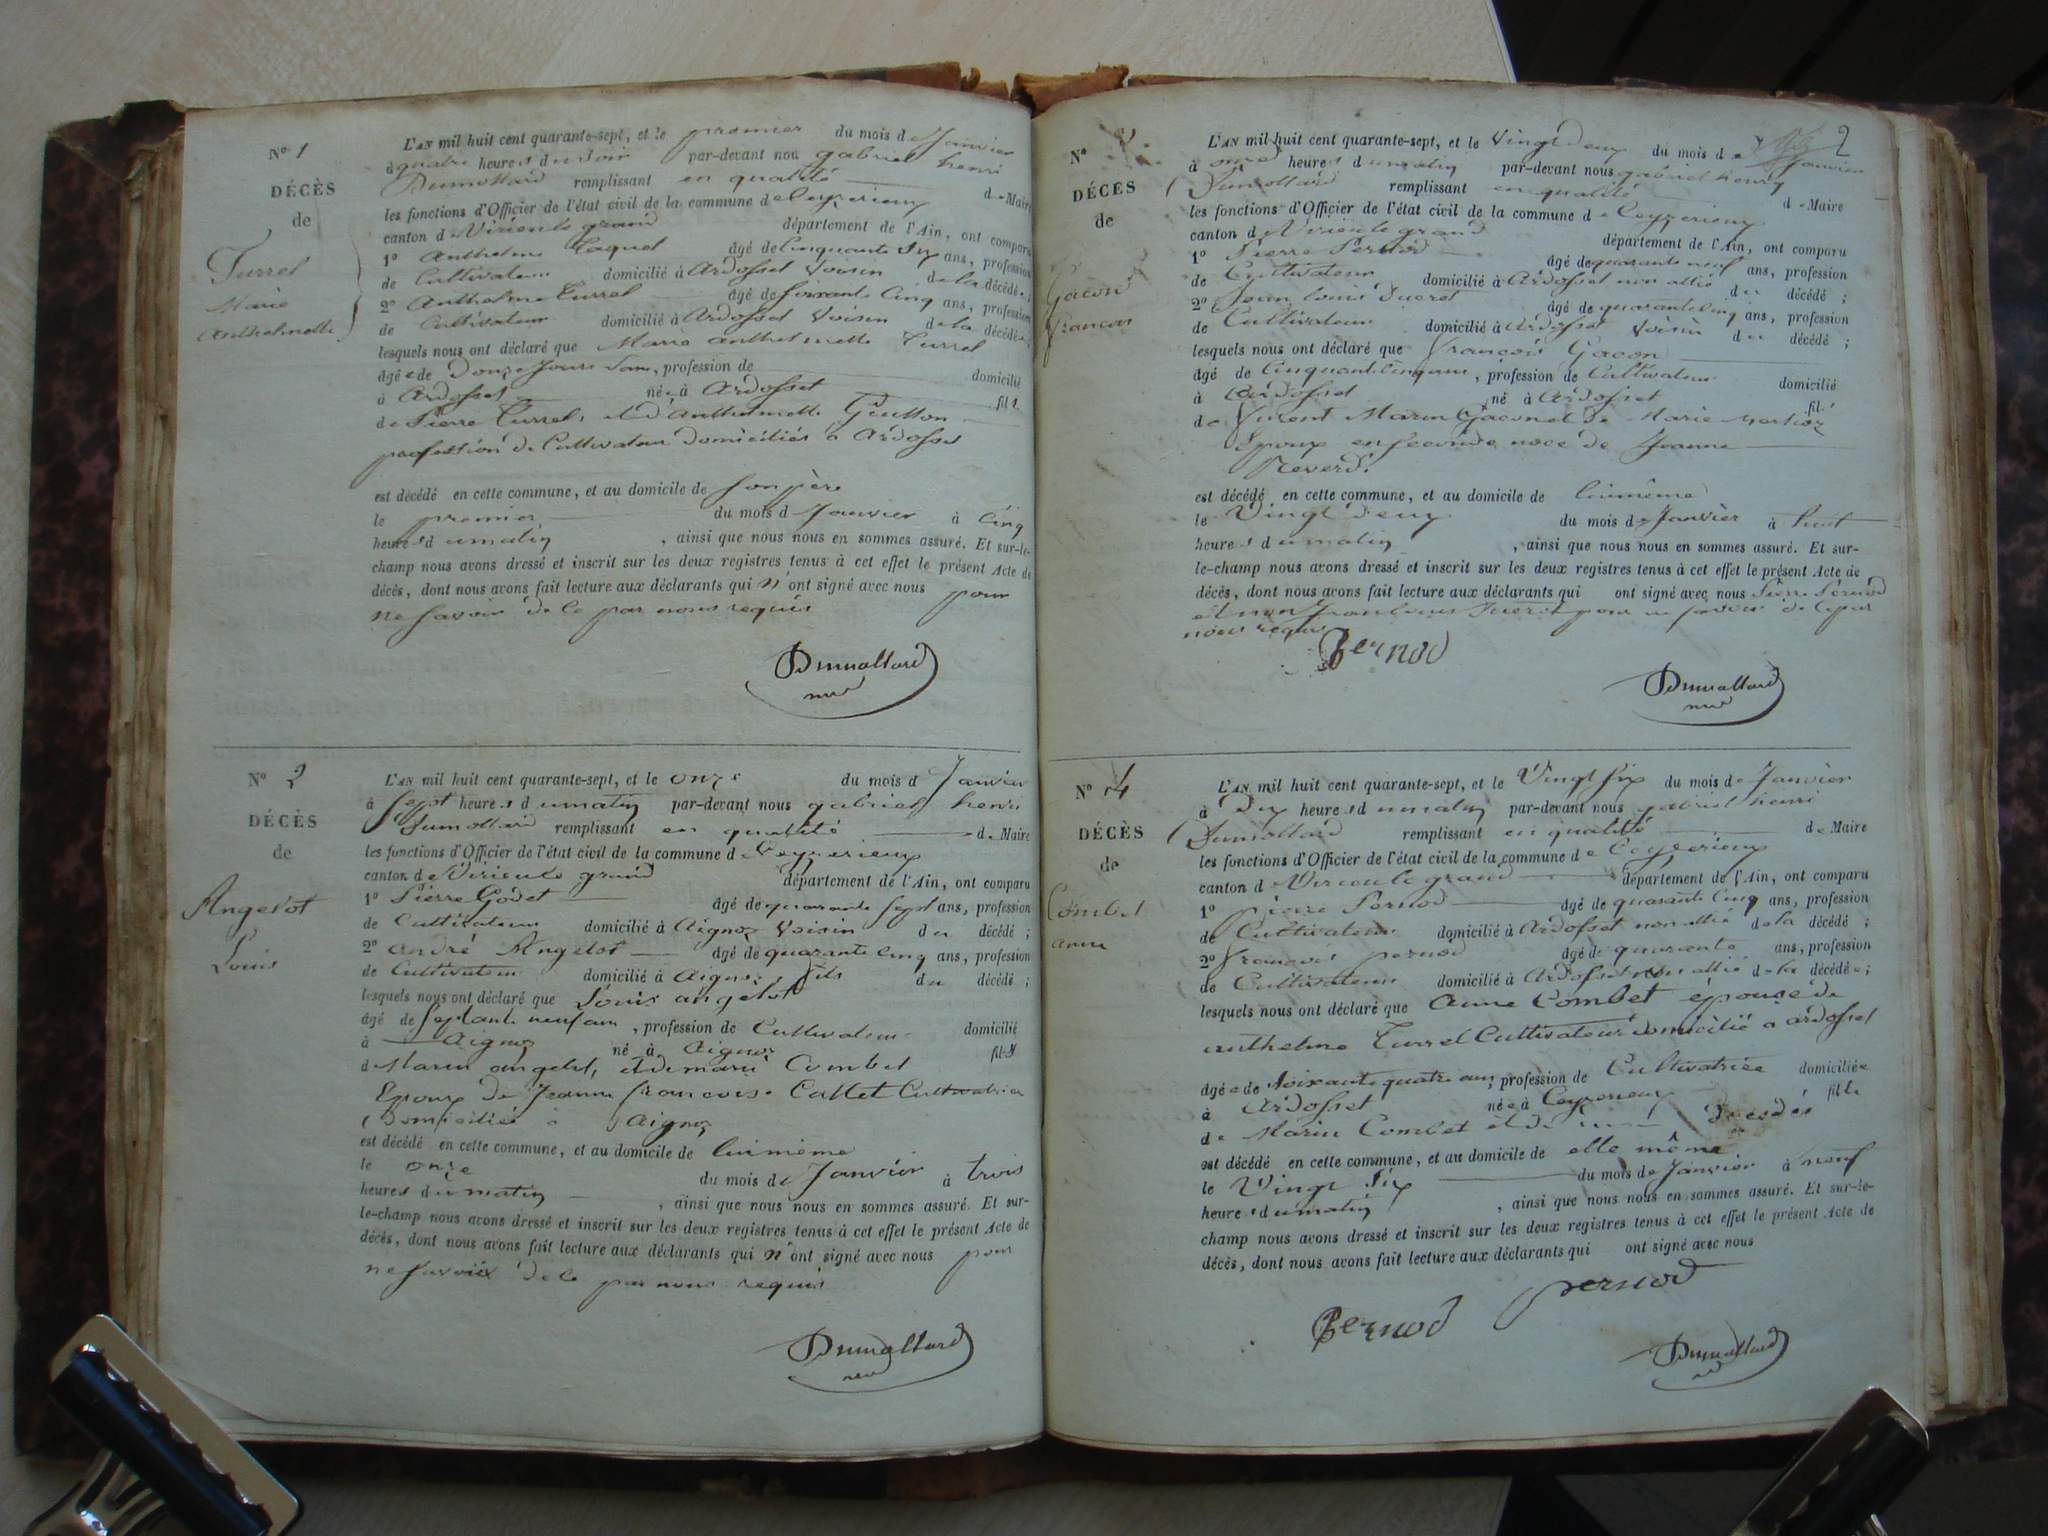 N° 1
DÉCÈS
de
Turrel
Marie
Anthelmette
L'AN mil huit cent quarante-sept, et le premier du mois de Janvier
à quatre heures du soir par-devant nou gabriel henri
Dumollard remplissant en qualité de Maire
les fonctions d'Officier de l'état civil de la commune de Ceyzerieux
canton de Virieu le grand département de l'Ain, ont comparu
1° Anthelme Taquet âgé de Cinquante Six ans, profession
de Cultivateur domicilié à Ardosset Voisin de la décédée ;
2° Anthelme Turrel âgé de soixante Cinq ans, profession
de Cultivateur domicilié à Ardosset Voisin de la décédée ;
lesquels nous ont déclaré que Marie anthelmette Turrel
âgée de Donze Jours , profession de domicilié
à Ardosset née à Ardosset fille
de Pierre Turrel, et d'Anthelmette
profession de Cultivateur domiciliés à Ardosset
est décédé en cette commune, et au domicile de son père
le premier du mois d Janvier à Cinq
heures du matin , ainsi que nous nous en sommes assuré. Et sur-le-
champ nous avons dressé et inscrit sur les deux registres tenus à cet effet le présent Acte de
décès, dont nous avons fait lecture aux déclarants qui n'ont signé avec nous pour
ne savoir de ce par nous requis
Dumollard
N° 2
DÉCÈS
de
Angelot
Louis
L'AN mil huit cent quarante-sept, et le onze du mois d Janvier
à sept heures du matin par-devant nous gabriel henri
Dumollard remplissant en qualité de Maire
les fonctions d'Officier de l'état civil de la commune d Ceyzerieux
canton de Virieu le grand département de l'Ain, ont comparu
1° Pierre Godet âgé de quarante sept ans, profession
de Cultivateur domicilié à Aignoz Voisin du décédé ;
2° André Angelot âgé de quarante Cinq ans, profession
de Cultivateur domicilié à Aignoz, fils du décédé ;
lesquels nous ont déclaré que Louis angelot
âgé de septante neuf ans , profession de Cultivateur domicilié
à Aignoz né à Aignoz fils
d Marin angelot, et de marie Combet
Epoux de Jeanne francoise Callet Cultivatrice
Domiciliés à Aignoz
est décédé en cette commune, et au domicile de lui même
le onze du mois de Janvier à trois
heures du matin , ainsi que nous nous en sommes assuré. Et sur-
le-champ nous avons dressé et inscrit sur les deux registres tenus à cet effet le présent Acte de
décès, dont nous avons fait lecture aux déclarants qui n'ont signé avec nous pour
ne savoir de ce par nous requis
Dumollard
2
N° 3
DÉCÈS
de
Gacon
François
L'AN mil huit cent quarante-sept, et le Vingt Deux du mois de Janvier
à onze heures du matin par-devant nous gabriel henry
Dumollard remplissant en qualité de Maire
les fonctions d'Officier de l'état civil de la commune de Ceyzerieux
canton de Virieu le grand département de l'Ain, ont comparu
1° Pierre Pernod âgé de quarante neuf ans, profession
de Cultivateur domicilié à Ardosset non allié du décédé ;
2° Jean Louis Ducret âgé de quarante Cinq ans, profession
de Cultivateur domicilié à Ardosset Voisin du décédé ;
lesquels nous ont déclaré que François Gacon
âgé de Cinquante Cinq ans , profession de Cultivateur domicilié
à Ardosset né à Ardosset fils
de Vincent Marin Gacon et de Marie
Epoux en seconde noce de Jeanne
Reverd.
est décédé en cette commune, et au domicile de lui même
le Vingt Deux du mois de Janvier à huit
heures du matin , ainsi que nous nous en sommes assuré. Et sur-
le-champ nous avons dressé et inscrit sur les deux registres tenus à cet effet le présent Acte de
décès, dont nous avons fait lecture aux déclarants qui ont signé avec nous Pierre Pernod
et non Jean Louis Ducret pour ne savoir de ce par
nous requis
Pernod
Dumollard
N° 4
DÉCÈS
de
Combet
anne
L'AN mil huit cent quarante-sept, et le Vingt Six du mois de Janvier
à Dix heures du matin par-devant nous gabriel henri
Dumollard remplissant en qualité de Maire
les fonctions d'Officier de l'état civil de la commune de Ceyzerieux
canton d Virieu le grand département de l'Ain, ont comparu
1° pierre Pernod âgé de quarante Cinq ans, profession
de Cultivateur domicilié à Ardosset non allié de la décédé ;
2° francois pernod âgé de quarante ans, profession
de Cultivateur domicilié à Ardosset non allié de la décédée ;
lesquels nous ont déclaré que anne Combet épouse de
anthelme Turrel Cultivateur domicilié a ardosset
âgée de soixante quatre ans, profession de Cultivatrice domiciliée
à Ardosset née à Ceyzerieux fille
de Marin Combet et de décédés
est décédé en cette commune, et au domicile de elle même
le Vingt Six du mois de Janvier à neuf
heures du matin , ainsi que nous nous en sommes assuré. Et sur-le-
champ nous avons dressé et inscrit sur les deux registres tenus à cet effet le présent Acte de
décès, dont nous avons fait lecture aux déclarants qui ont signé avec nous
Pernod pernod
Dumollard